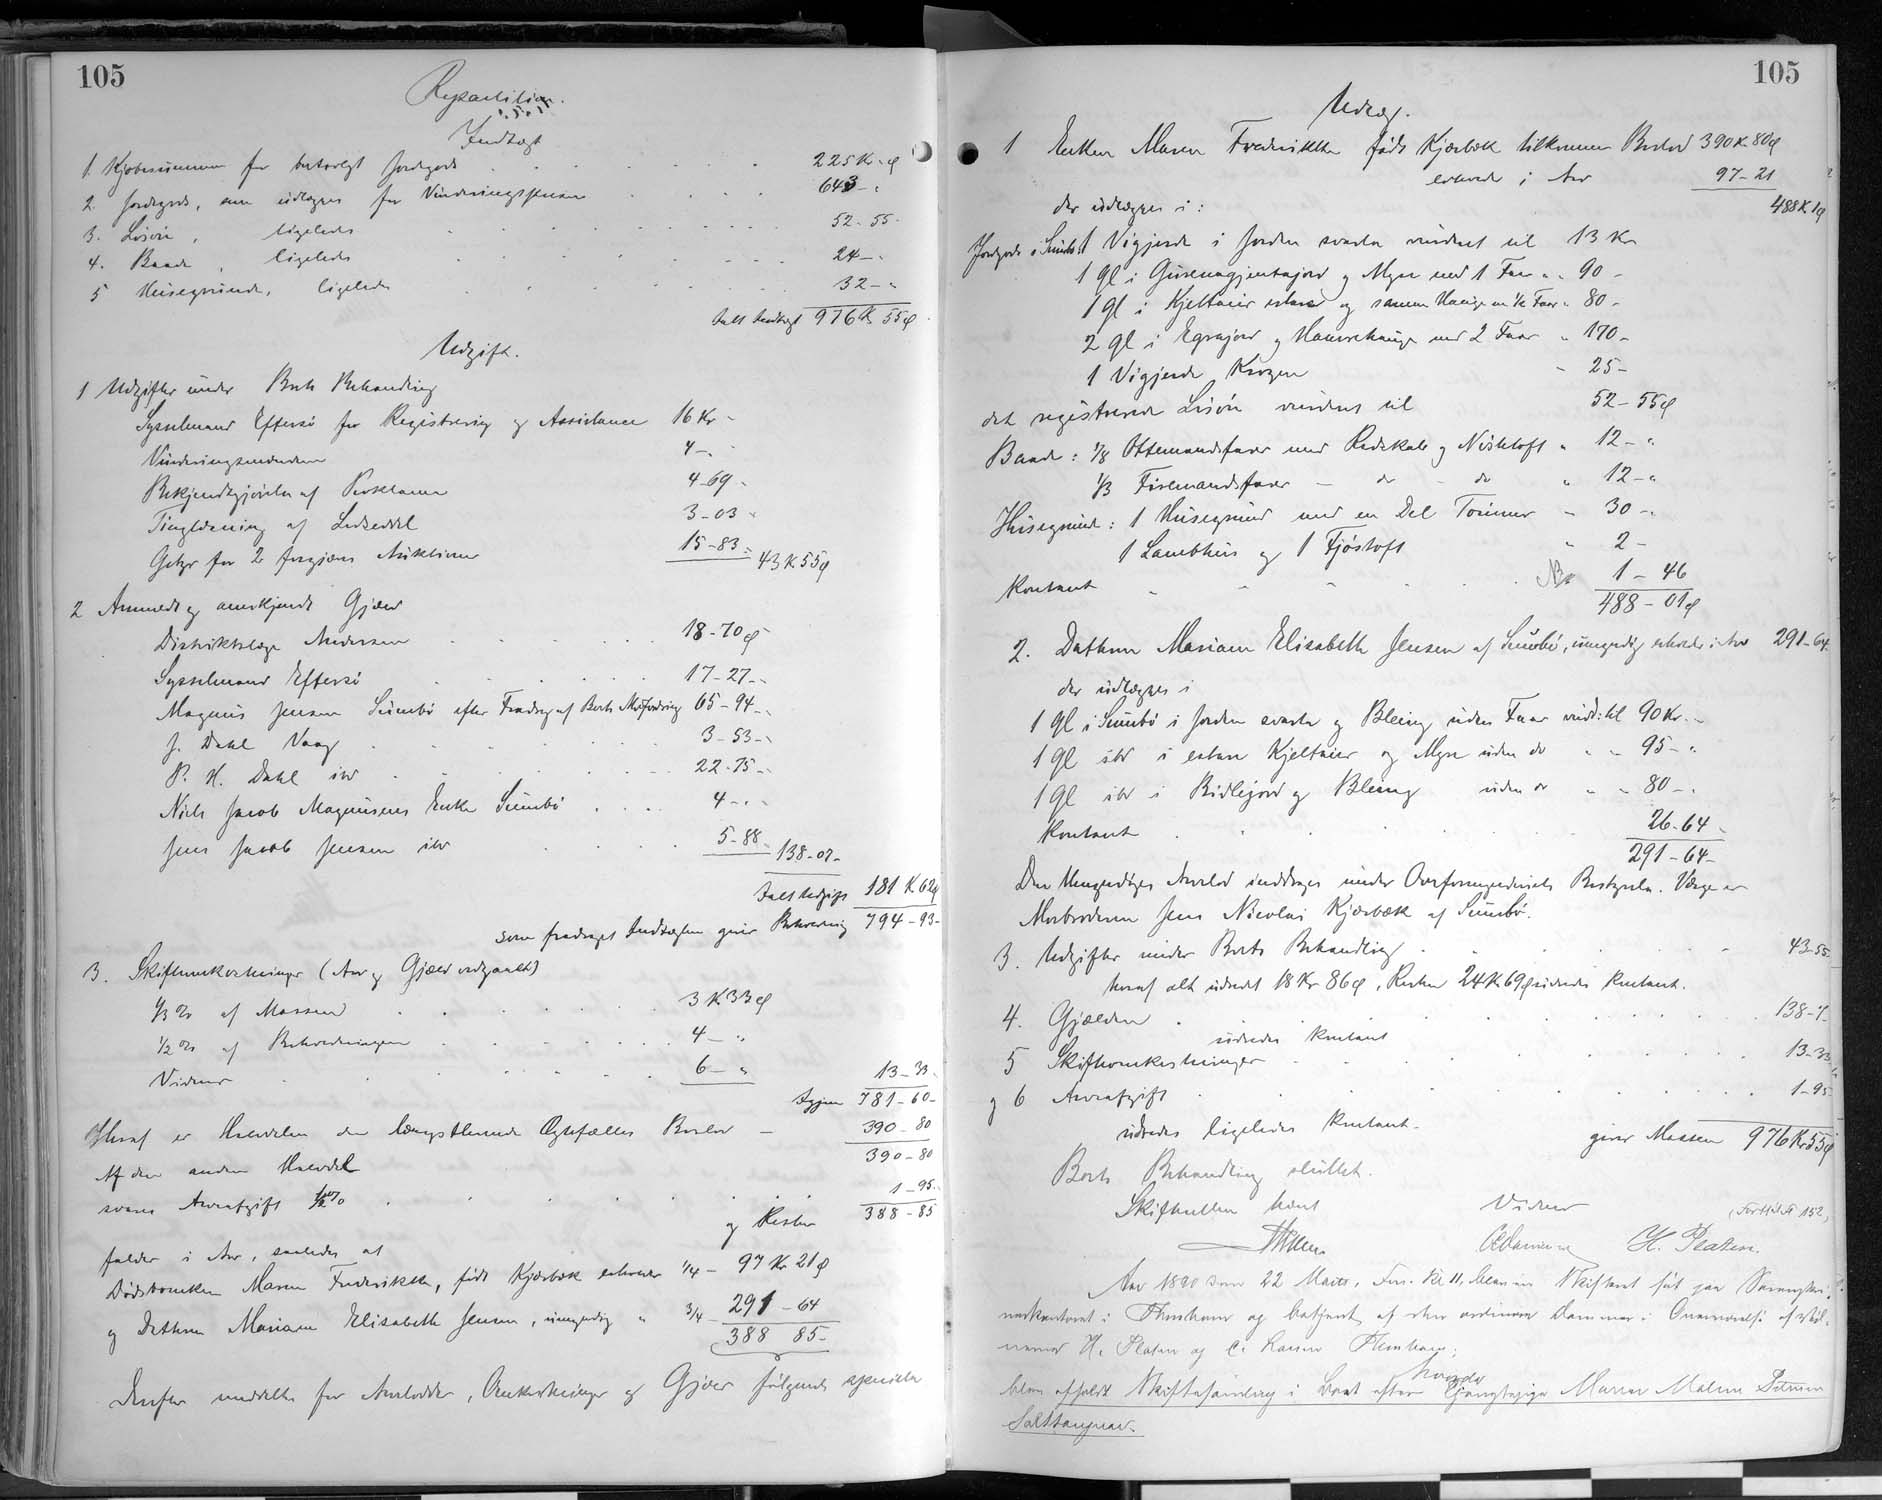 105
Repartition.
Indtægt
1. Kjøbesummen for bortsolgt Jordegods 225 Kr. " Ø
2. Jordegods, som udlægges for Vurderingssummen 643 - "
3. Løsøre, ligeledes 52 - 55 -
4. Baade, ligeledes 24 - "
5 Husegrunde, ligeledes 32 - "
Ialt Indtægt 976 K 55 Ø
Udgift.
1 Udgifter under Boets Behandling
Sysselmand Effersø for Registrering og Assistance 16 Kr -
Vurderingsmændene 4 - "
Bekjendtgjørelse af Proklama 4 - 69 -
Tinglæsning af Lodseddel 3 - 03 -
Gebyr for 2 Auktioner 15 - 83 -
43 K 55 Ø
2 Anmeldt og anerkjendt Gjæld
Distriktslæge Andersen 18 - 70 Ø
Sysselmand Effersø 17 - 27 -
Magnus Jensen Sumbø efter Fradrag af Boets Modfordring 65 - 94 -
J. Dahl Vaag 3 - 53 -
P. H. Dahl ibd 22 - 75 -
Niels Jacob Magnusens Enke Sumbø 4 - "
Jens Jacob Jensen ibd 5 - 88 -
138 - 07 -
Ialt Udgift 181 K 62 Ø
som fradraget Indtægten giver Beholdning 794 - 93 -
3. Skifteomkostninger (Arv og Gjæld vedgaaet)
1/3 % af Massen 3 K 33 Ø
1/2 % af Beholdningen 4 - "
Vidner 6 - "
13 - 33 -
Igjen 781 - 60 -
Heraf er Halvdelen den længstlevende Ægtefælles Boslod - 390 - 80
Af den anden Halvdel 390 - 80
svares Arveafgift 1/2 % 1 - 95 -
og Resten 388 - 85
falder i Arv, saaledes at
Dødsboenken Maren Frederikke, født Kjærbæk erholder 1/4 - 97 Kr 21 Ø
og Datteren Mariane Elisabeth Jensen, umyndig " 3/4 - 291 - 64
388 85 -
Derefter meddeltes for Arvelodder, Omkostninger og Gjæld følgende specielle
105
Udlæg.
1 Enken Maren Frederikke født Kjærbæk tilkommer Boslod 390 K 80 Ø
erholder i Arv 97 - 21
488 K 1 Ø
der udlægges i:
Jordegods i Sumbø: 1 Vigjerde i Jorden svarta vurderet til 13 Kr
1 Gl i og Myre med 1 Faar " " 90 -
1 Gl i Kjeltneir og samme Hauge m 1/2 Faar " 80 -
2 Gl i Egrajord og med 2 Faar " 170 -
1 Vigjerde Krogen " 25 -
det registrerede Løsøre vurderet til 52 - 55 Ø
Baade: 1/8 Ottemandsfarer med Redskab og Nøstetoft " 12 - "
1/3 Firemandsfarer - do - do " 12 - "
Husegrund: 1 Husegrund med en Del Tømmer - 30 - "
1 Lambhus og 1 Fjøstoft " 2 -
Kontant 1 - 46
488 - 01 Ø
2. Datteren Mariane Elisabeth Jensen af Sumbø, umyndig erholder i Arv 291 - 64
der udlægges i
1 Gl i Sumbø i Jorden svarta og Bleing uden Faar vurd: til 90 Kr. -
1 Gl ibd i Kjeltneir og Myre uden do " - 95 - "
1 Gl ibd i Bidlejord og Bleing uden do " - 80 - "
Kontant 26 - 64 -
291 - 64 -
Den Umyndiges Arvelod inddrages under Overformynderiets Bestyrelse. Værge er
Morbroderen Jens Nicolai Kjærbæk af Sumbø.
3. Udgifter under Boets Behandling 43 - 55
heraf alt udredet 18 Kr 86 Ø, Resten 24 K 69 Ø udredes kontant.
4. Gjælden 138 - 7 -
udredes kontant
5 Skifteomkostninger 13 - 33
og 6 Arveafgift 1 - 95 -
udredes ligeledes kontant.
giver Massen 976 Kr 55 Ø
Boets Behandling sluttet.
Skifteretten hævet
Vidner
H. Platen.
Aar 1890 den 22 Marts, Frm. Kl 11, blev en Skifteret sat paa
i Thorshavn og betjent af den ordinære Dommer i Overværelse af Vid-
nerne H. Platen og C. Hansen Thorshavn;
blev afholdt Skiftesamling i Boet efter Maren Malene